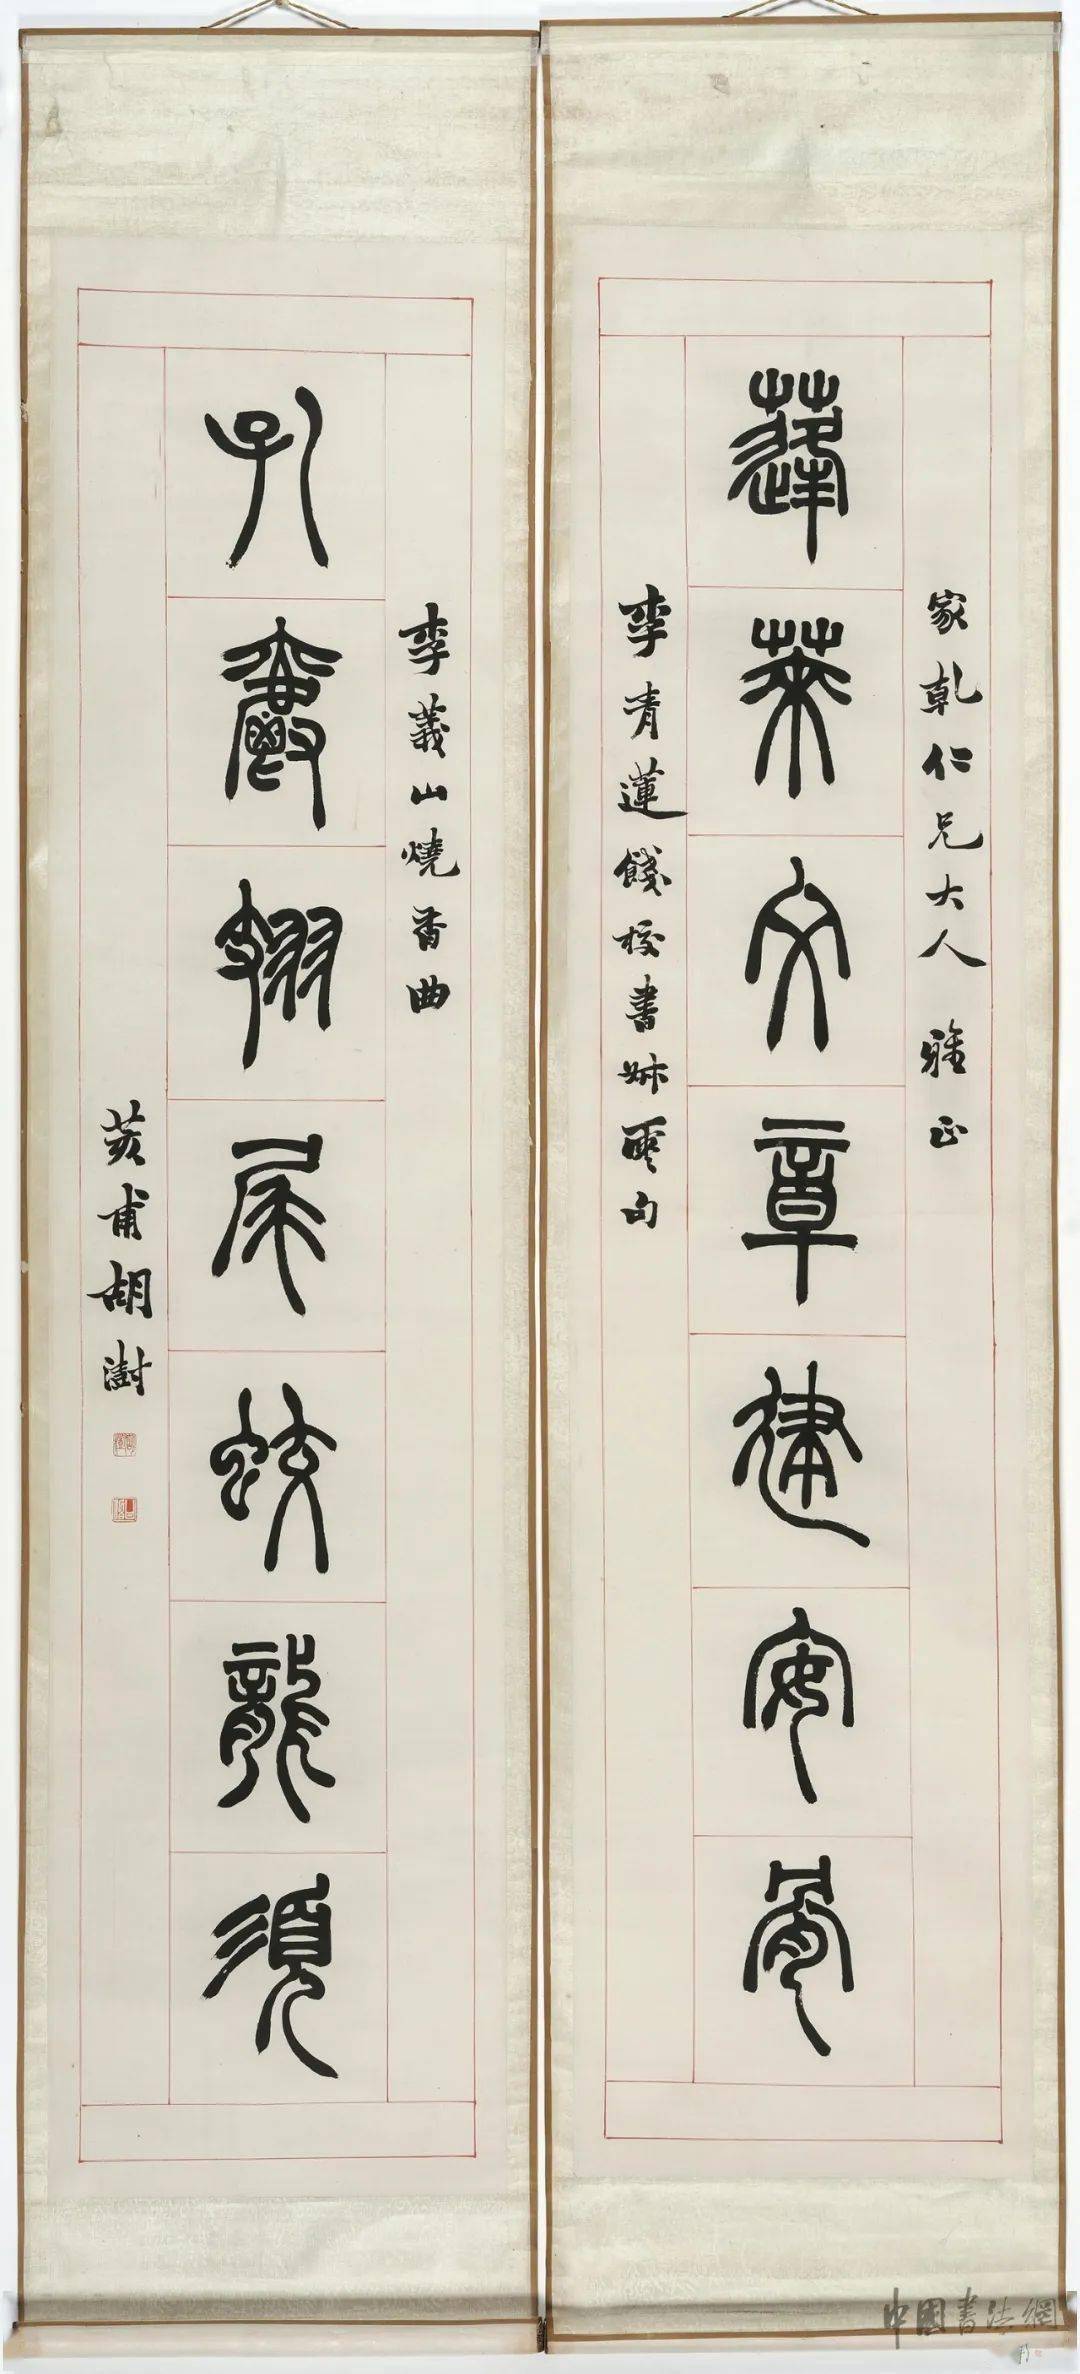 家乾仁兄大人 雅正
蓬萊文章建安骨
李青蓮餞校書叔雲句
李義山燒香曲
孔雀翅尾蛟龍須
荄甫胡澍
中國書法網